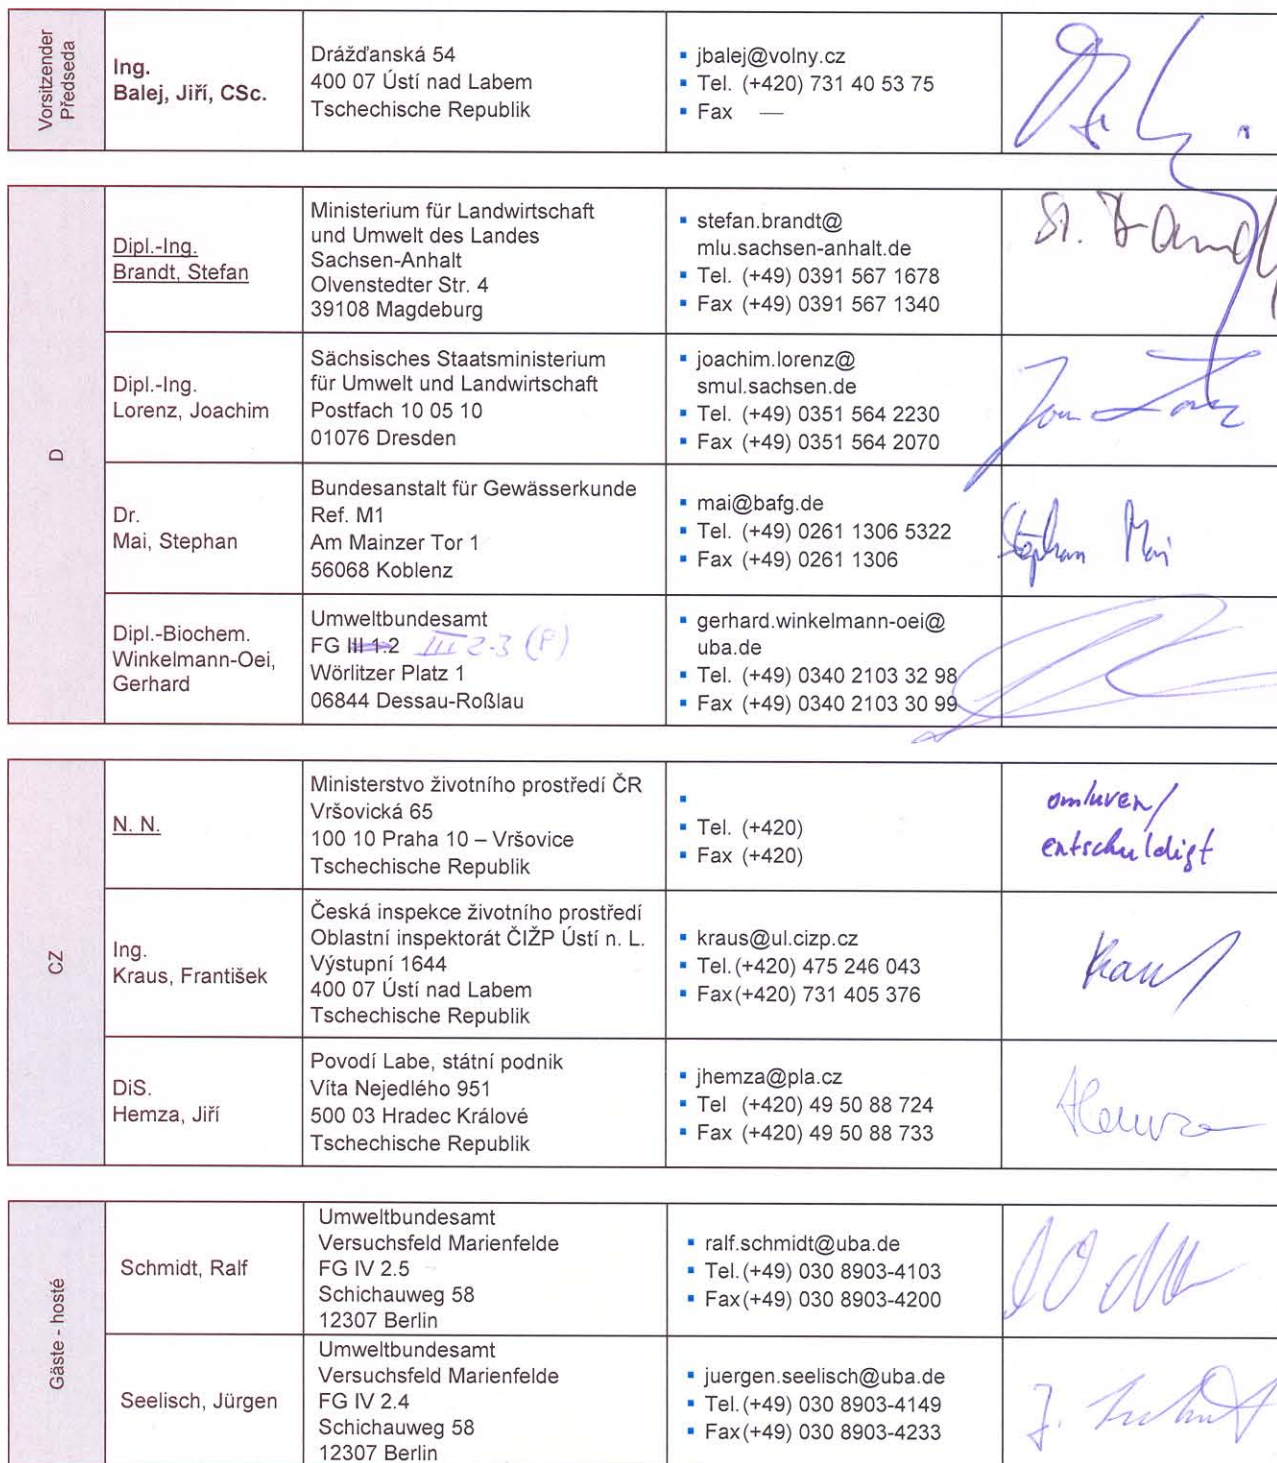 Vorsitzender
Předseda
Ing.
Balej, Jiří, CSc.
Drážďanská 54
400 07 Ústí nad Labem
Tschechische Republik
▪ jbalej@volny.cz
▪ Tel. (+420) 731 40 53 75
▪ Fax —
D
Dipl.-Ing.
Brandt, Stefan
Ministerium für Landwirtschaft
und Umwelt des Landes
Sachsen-Anhalt
Olvenstedter Str. 4
39108 Magdeburg
▪ stefan.brandt@
mlu.sachsen-anhalt.de
▪ Tel. (+49) 0391 567 1678
▪ Fax (+49) 0391 567 1340
St. Brandt
Dipl.-Ing.
Lorenz, Joachim
Sächsisches Staatsministerium
für Umwelt und Landwirtschaft
Postfach 10 05 10
01076 Dresden
▪ joachim.lorenz@
smul.sachsen.de
▪ Tel. (+49) 0351 564 2230
▪ Fax (+49) 0351 564 2070
Dr.
Mai, Stephan
Bundesanstalt für Gewässerkunde
Ref. M1
Am Mainzer Tor 1
56068 Koblenz
▪ mai@bafg.de
▪ Tel. (+49) 0261 1306 5322
▪ Fax (+49) 0261 1306
Stephan Mai
Dipl.-Biochem.
Winkelmann-Oei,
Gerhard
Umweltbundesamt
FG III 1.2 III 2-3 (P)
Wörlitzer Platz 1
06844 Dessau-Roßlau
▪ gerhard.winkelmann-oei@
uba.de
▪ Tel. (+49) 0340 2103 32 98
▪ Fax (+49) 0340 2103 30 99
CZ
N. N.
Ministerstvo životního prostředí ČR
Vršovická 65
100 10 Praha 10 – Vršovice
Tschechische Republik
▪
▪ Tel. (+420)
▪ Fax (+420)
omluven/
entschuldigt
Ing.
Kraus, František
Česká inspekce životního prostředí
Oblastní inspektorát ČIŽP Ústí n. L.
Výstupní 1644
400 07 Ústí nad Labem
Tschechische Republik
▪ kraus@ul.cizp.cz
▪ Tel. (+420) 475 246 043
▪ Fax (+420) 731 405 376
Kraus
DiS.
Hemza, Jiří
Povodí Labe, státní podnik
Víta Nejedlého 951
500 03 Hradec Králové
Tschechische Republik
▪ jhemza@pla.cz
▪ Tel (+420) 49 50 88 724
▪ Fax (+420) 49 50 88 733
Hemza
Gäste - hosté
Schmidt, Ralf
Umweltbundesamt
Versuchsfeld Marienfelde
FG IV 2.5
Schichauweg 58
12307 Berlin
▪ ralf.schmidt@uba.de
▪ Tel. (+49) 030 8903-4103
▪ Fax (+49) 030 8903-4200
Seelisch, Jürgen
Umweltbundesamt
Versuchsfeld Marienfelde
FG IV 2.4
Schichauweg 58
12307 Berlin
▪ juergen.seelisch@uba.de
▪ Tel. (+49) 030 8903-4149
▪ Fax (+49) 030 8903-4233